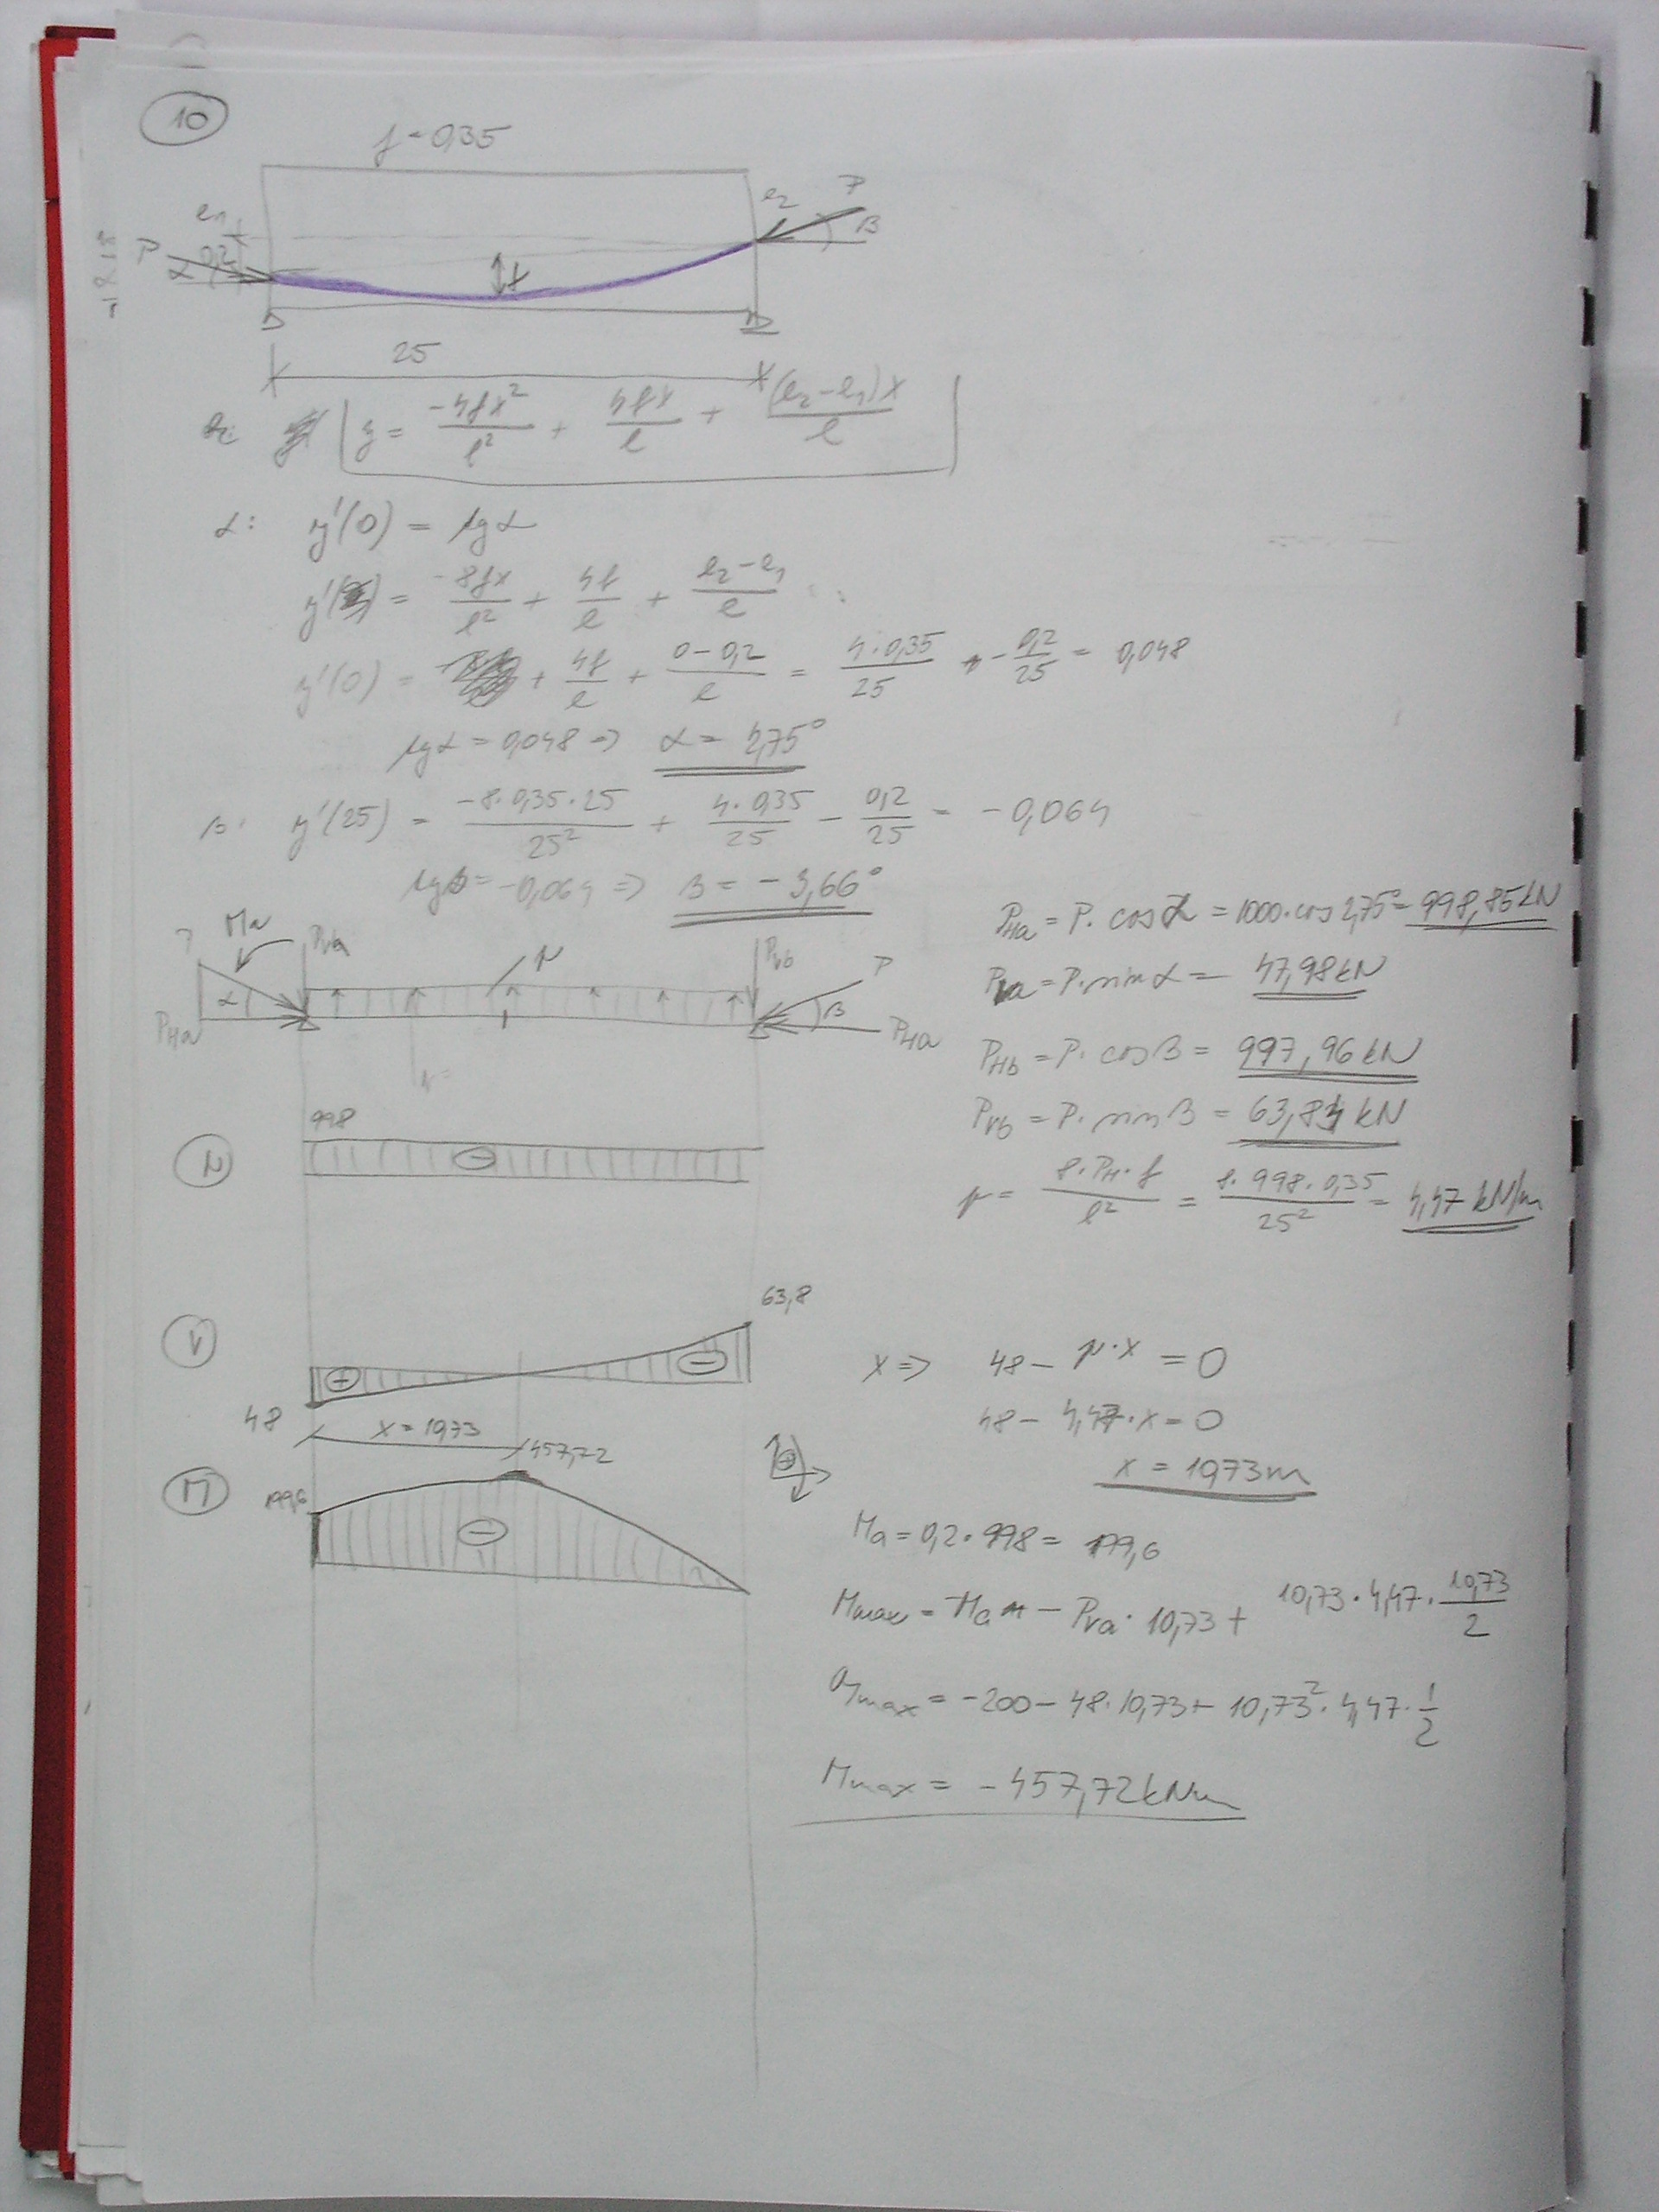 10
f = 0,35
e1
e2
P
β
P
α
0,2
f
25
y = -4fx²/l² + 4fx/l + (e2-e1)x/l
α: y'(0) = tgα
y'(x) = -8fx/l² + 4f/l + e2-e1/l
y'(0) = + 4f/l + 0-0,2/l = 4·0,35/25 - 0,2/25 = 0,048
tgα = 0,048 => α = 2,75°
β: y'(25) = -8·0,35·25/25² + 4·0,35/25 - 0,2/25 = -0,064
tgβ = -0,064 => β = -3,66°
PHa = P·cosα = 1000·cos2,75° = 998,85kN
P Ma Pva p Pvb P
α β
PHa PHa
Pva = P·sinα = 47,98kN
PHb = P·cosβ = 997,96kN
Pvb = P·sinβ = 63,84 kN
p = 8·PH·f/l² = 8·998·0,35/25² = 4,47 kN/m
N 998 -
V 63,8
+ -
48 x = 10,73
x => 48 - p·x = 0
48 - 4,47·x = 0
x = 10,73m
M 199,6 457,72
-
+
Ma = 0,2·998 = 199,6
Mmax = Ma - Pva·10,73 + 10,73·4,47·10,73/2
Mmax = -200 - 48·10,73 + 10,73²·4,47·1/2
Mmax = -457,72kNm